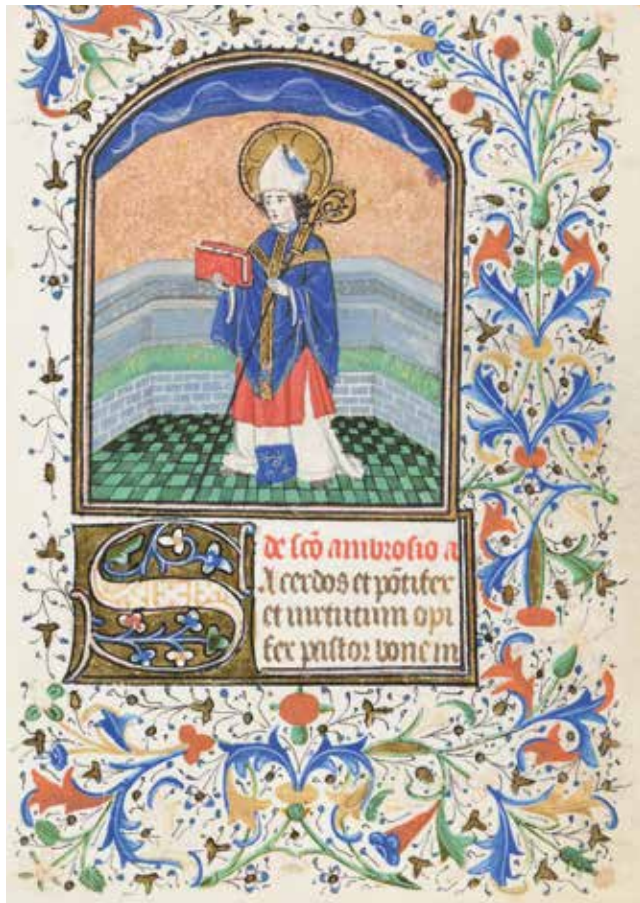 de sc̄o ambrosio a
Acerdos et pōtifex
et uirtutum opi
fex pastor bone m